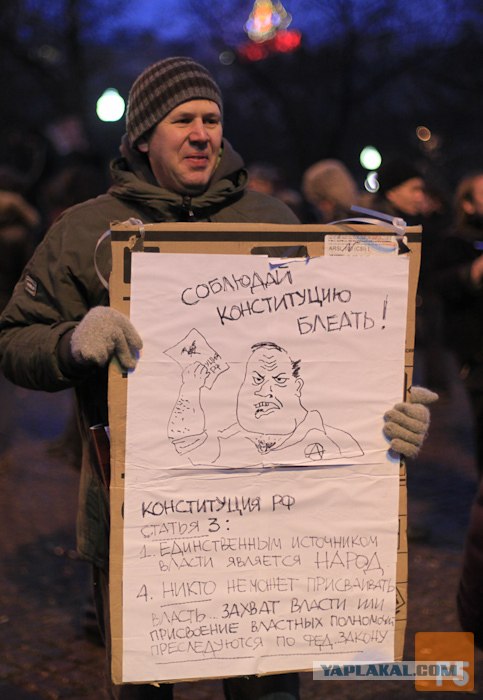 СОБЛЮДАЙ
КОНСТИТУЦИЮ
БЛЕДТЬ!
КОНСТИТУЦИЯ РФ
СТАТЬЯ 3:
1. ЕДИНСТВЕННЫМ ИСТОЧНИКОМ
ВЛАСТИ ЯВЛЯЕТСЯ НАРОД
4. НИКТО НЕ МОЖЕТ ПРИСВАИВАТЬ
ВЛАСТЬ... ЗАХВАТ ВЛАСТИ ИЛИ
ПРИСВОЕНИЕ ВЛАСТНЫХ ПОЛНОМОЧИ
ПРЕСЛЕДУЮТСЯ ПО ФЕД. ЗАКОНУ
YAPLAKAL.COM